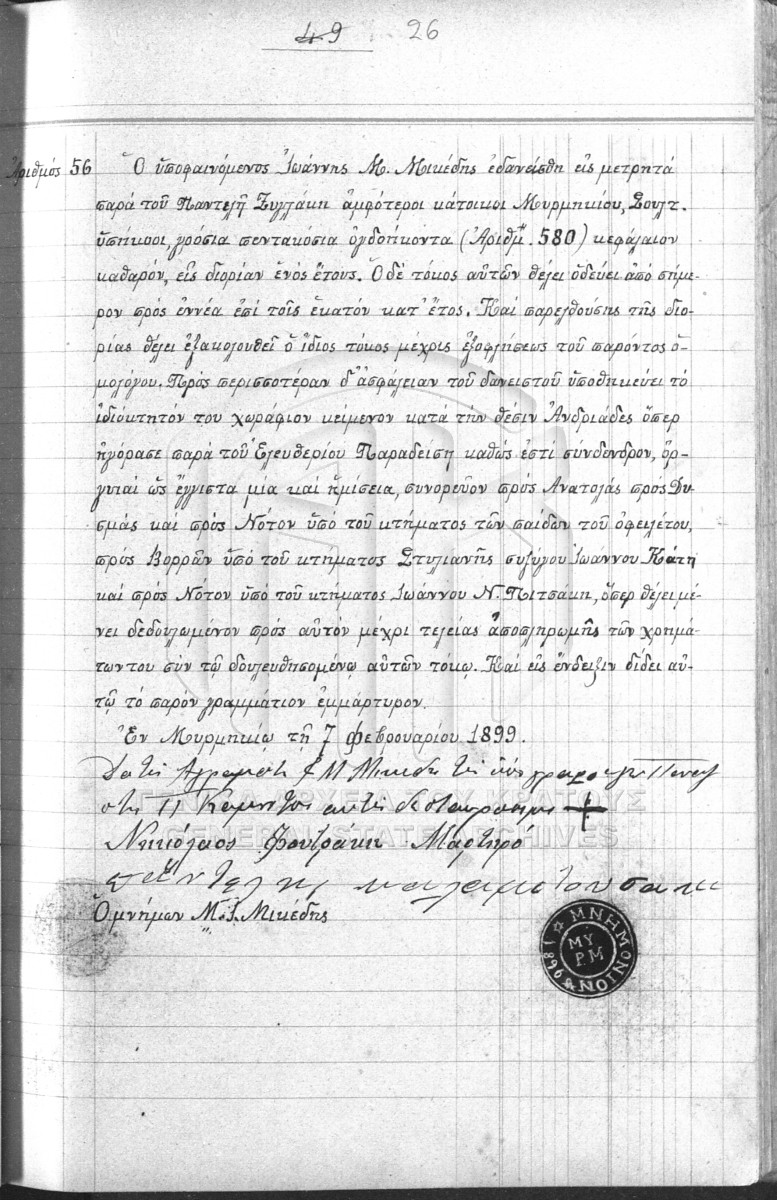 49 26
Ἀριθμός 56 Ὁ ὑποφαινόμενος Ἰωάννης Μ. Μικέδης ἐδανείσθη εἰς μετρητά
παρά τοῦ Παντελῆ Ξυλλάκη ἀμφότεροι κάτοικοι Μυρμηκίου, Σουλτ.
ὑπήκοοι, γρόσια πεντακόσια ὀγδοήκοντα (Ἀριθμ. 580) κεφάλαιον
καθαρόν, εἰς διορίαν ἑνός ἔτους. Ὁ δέ τόκος αὐτῶν θέλει ὁδεύει ἀπό σήμε-
ρον πρός ἐννέα ἐπί τοῖς ἑκατόν κατ' ἔτος. Καί παρελθούσης τῆς διο-
ρίας θέλει ἐξακολουθεῖ ὁ ἴδιος τόκος μέχρις ἐξοφλήσεως τοῦ παρόντος ὁ-
μολόγου. Πρός περισσοτέραν δ' ἀσφάλειαν τοῦ δανειστοῦ ὑποθηκεύει τό
ἰδιόκτητόν του χωράφιον κείμενον κατά τήν θέσιν Ἀνδριάδες ὅπερ
ἠγόρασε παρά τοῦ Ἐλευθερίου Παραδείση καθώς ἐστί σύνδενδρον, ὀρ-
γυιαί ὡς ἔγγιστα μία καί ἡμίσεια, συνορεῦον πρός Ἀνατολάς πρός Δυ-
σμάς καί πρός Νότον ὑπό τοῦ κτήματος τῶν παίδων τοῦ ὀφειλέτου,
πρός Βορρᾶν ὑπό τοῦ κτήματος Στυλιανῆς συζύγου Ἰωάννου Κάτη
καί πρός Νότον ὑπό τοῦ κτήματος Ἰωάννου Ν. Πιτσάκη, ὅπερ θέλει μέ-
νει δεδουλωμένον πρός αὐτόν μέχρι τελείας ἀποπληρωμῆς τῶν χρημά-
των του σύν τῷ δουλευθησομένῳ αὐτῶν τόκῳ. Καί εἰς ἔνδειξιν δίδει αὐ-
τῷ τό παρον γραμμάτιον ἐμμάρτυρον.
Ἐν Μυρμηκίῳ τῇ 7 Φεβρουαρίου 1899.
Μικεδη
+
Νηκόλαος Φουτράκη Μαρτηρό
παντελης
Ὁ μνήμων Μ. Ι. Μικέδης
ΜΝΗΜΟΝΙΟΝ 1896
ΜΥ
ΡΜ
ΓΕΝΙΚΑ ΑΡΧΕΙΑ ΤΟΥ ΚΡΑΤΟΥΣ
GENERAL STATE ARCHIVES